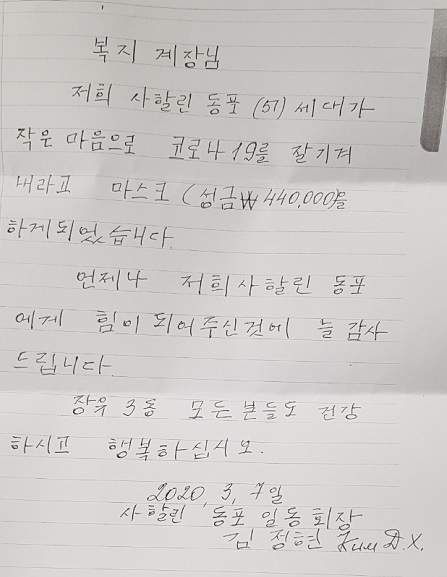 복지 계장님
저희 사할린 동포 (57) 세대가
작은 마음으로 코로나 19를 잘기겨
내라고 마스크 (성금₩440,000)을
하게되었습니다.
언제나 저희사할린 동포
에게 힘이 되어주신것에 늘 감사
드립니다.
장유 3동 모든분들도 건강
하시고 행복하십시오.
2020, 3, 7일
사할린 동포 일동회장
김 정현 Ким Д.Х.